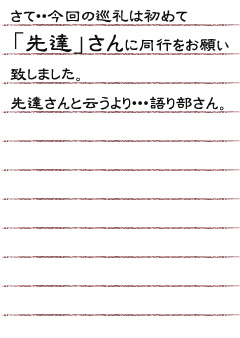 さて・・今回の巡礼は初めて
「先達」さんに同行をお願い
致しました。
先達さんと云うより・・・語り部さん。